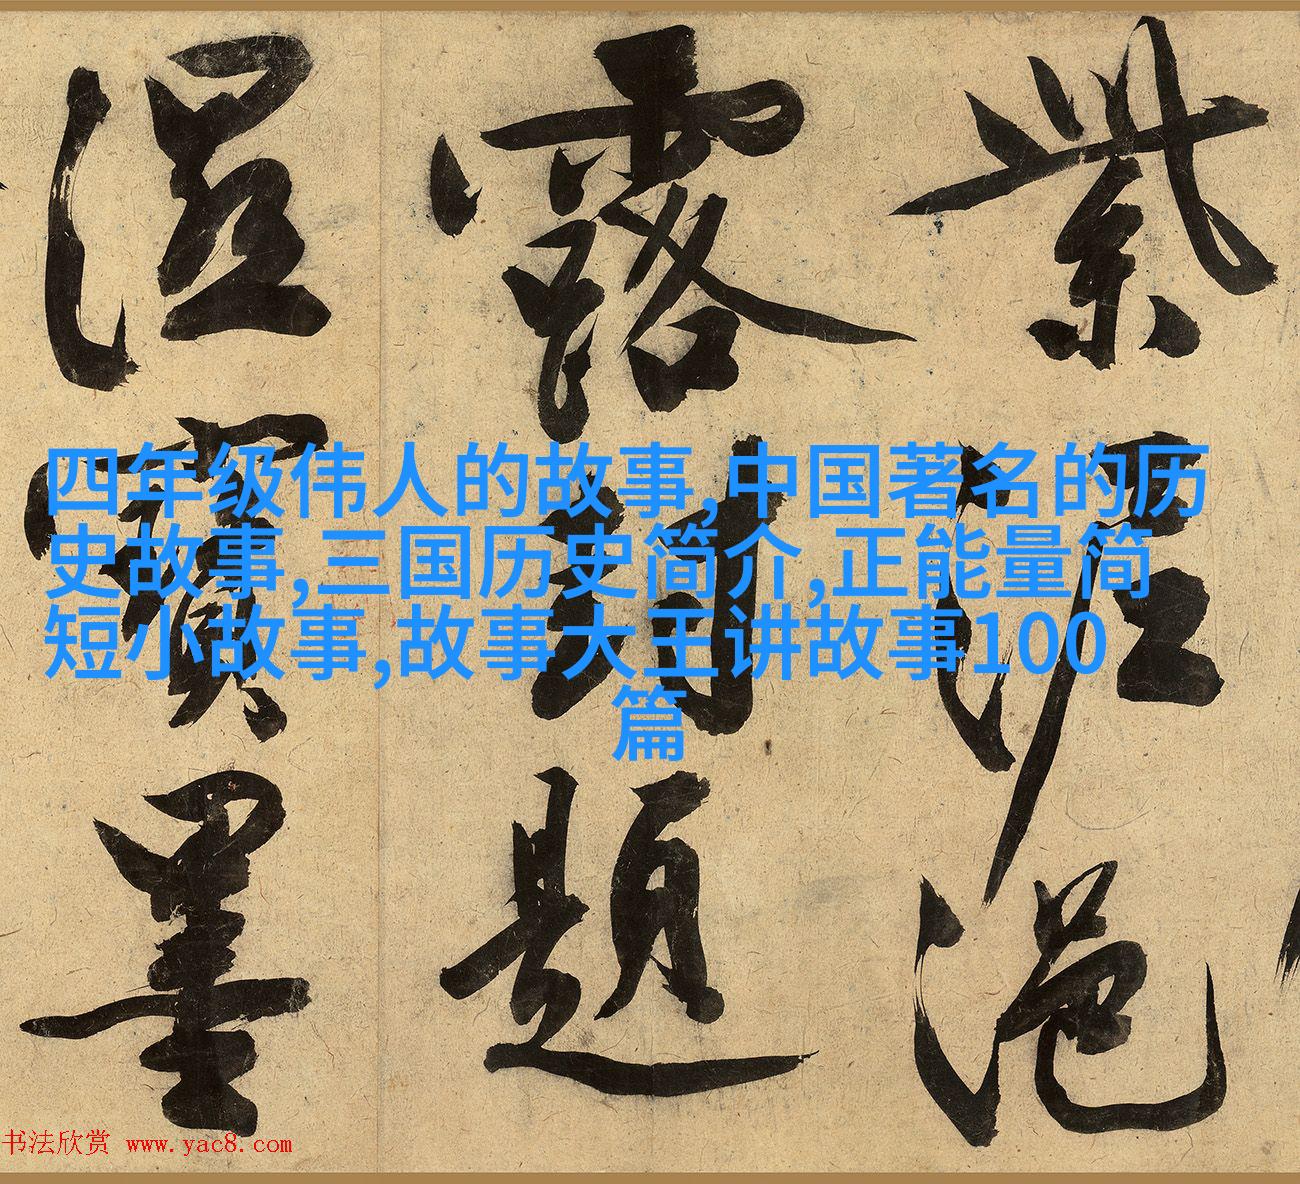 紫泥浥
露封題
濕寶墨
四年级伟人的故事,中国著名的历
史故事,三国历史简介,正能量简
短小故事,故事大王讲故事100
篇
书法欣赏 www.yac8.com